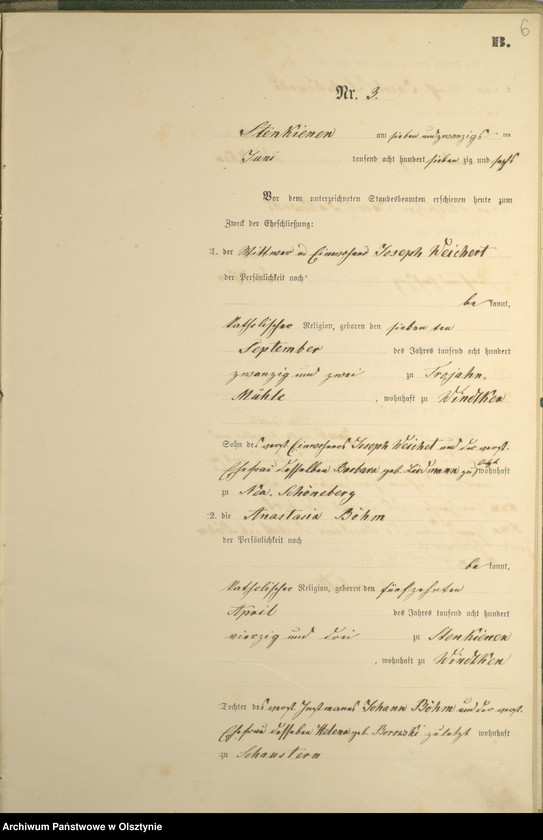 6
B.
Nr. 3.
Stenkienen am sieben und zwanzigsten
Juni tausend acht hundert sieben zig und sechs
Vor dem unterzeichneten Standesbeamten erschienen heute zum
Zweck der Eheschließung:
1. der Wittwer und Einwohner Joseph Weichert
der Persönlichkeit nach
be kannt,
katholischer Religion, geboren den sieben ten
September des Jahres tausend acht hundert
zwanzig und zwei zu Trojahn-
Mühle, wohnhaft zu Windtken
Sohn des verst. Einwohners Joseph Weichert und der verst.
Ehefrau desselben Barbara geb. Liedmann zuletzt wohnhaft
zu Neu-Schöneberg
2. die Anastasia Böhm
der Persönlichkeit nach
be kannt,
katholischer Religion, geboren den fünfzehnten
April des Jahres tausend acht hundert
vierzig und drei zu Stenkienen
, wohnhaft zu Windtken
Tochter des verst. Instmanns Johann Böhm und der verst.
Ehefrau desselben Helena geb. Borowski zuletzt wohnhaft
zu Schaustern
Archiwum Państwowe w Olsztynie